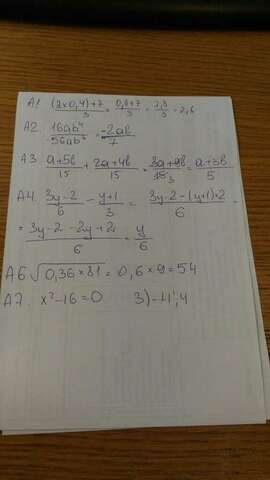 A1 (2×0,4)+7/3 = 0,8+7/3 = 7,8/3 = 2,6
A2. 16ab⁴/-56ab³ = -2ab/7
A3 a+5b/15 + 2a+4b/15 = 3a+9b/15 = a+3b/5
A4. 3y-2/6 - y+1/3 = 3y-2-(y+1)·2/6
= 3y-2-2y+2/6 = y/6
A6 √0,36×81 = 0,6×9=54
A7. x²-16=0 3)-4;4